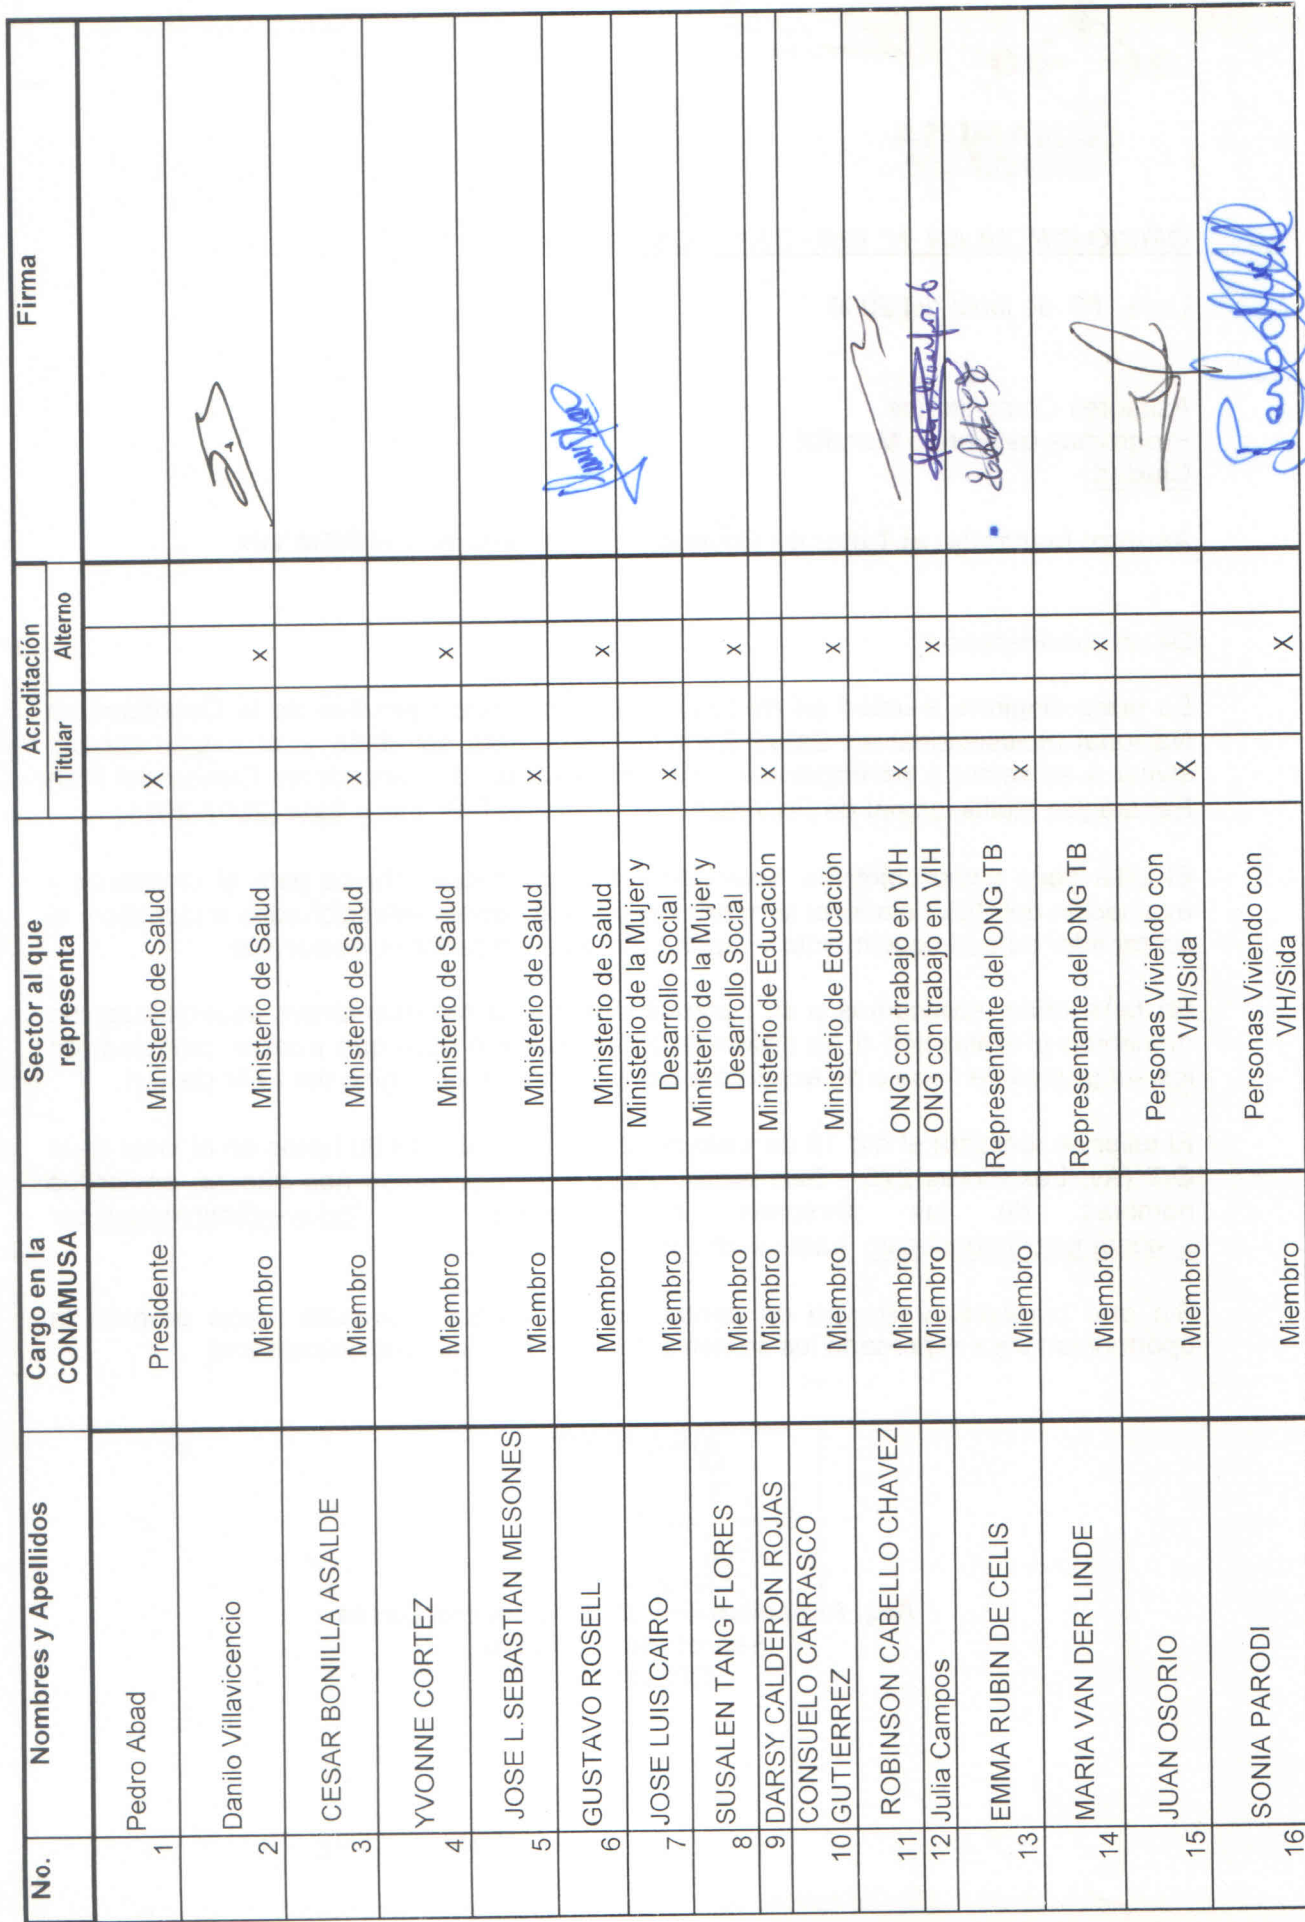 No. Nombres y Apellidos Cargo en la CONAMUSA Sector al que representa Acreditación Firma
Titular Alterno
1 Pedro Abad Presidente Ministerio de Salud X
2 Danilo Villavicencio Miembro Ministerio de Salud X
3 CESAR BONILLA ASALDE Miembro Ministerio de Salud X
4 YVONNE CORTEZ Miembro Ministerio de Salud X
5 JOSE L.SEBASTIAN MESONES Miembro Ministerio de Salud X
6 GUSTAVO ROSELL Miembro Ministerio de Salud X
7 JOSE LUIS CAIRO Miembro Ministerio de la Mujer y
Desarrollo Social X
8 SUSALEN TANG FLORES Miembro Ministerio de la Mujer y
Desarrollo Social X
9 DARSY CALDERON ROJAS Miembro Ministerio de Educación X
CONSUELO CARRASCO
10 GUTIERREZ Miembro Ministerio de Educación X
11 ROBINSON CABELLO CHAVEZ Miembro ONG con trabajo en VIH X
12 Julia Campos Miembro ONG con trabajo en VIH X
13 EMMA RUBIN DE CELIS Miembro Representante del ONG TB X
14 MARIA VAN DER LINDE Miembro Representante del ONG TB X
15 JUAN OSORIO Miembro Personas Viviendo con
VIH/Sida X
16 SONIA PARODI Miembro Personas Viviendo con
VIH/Sida X